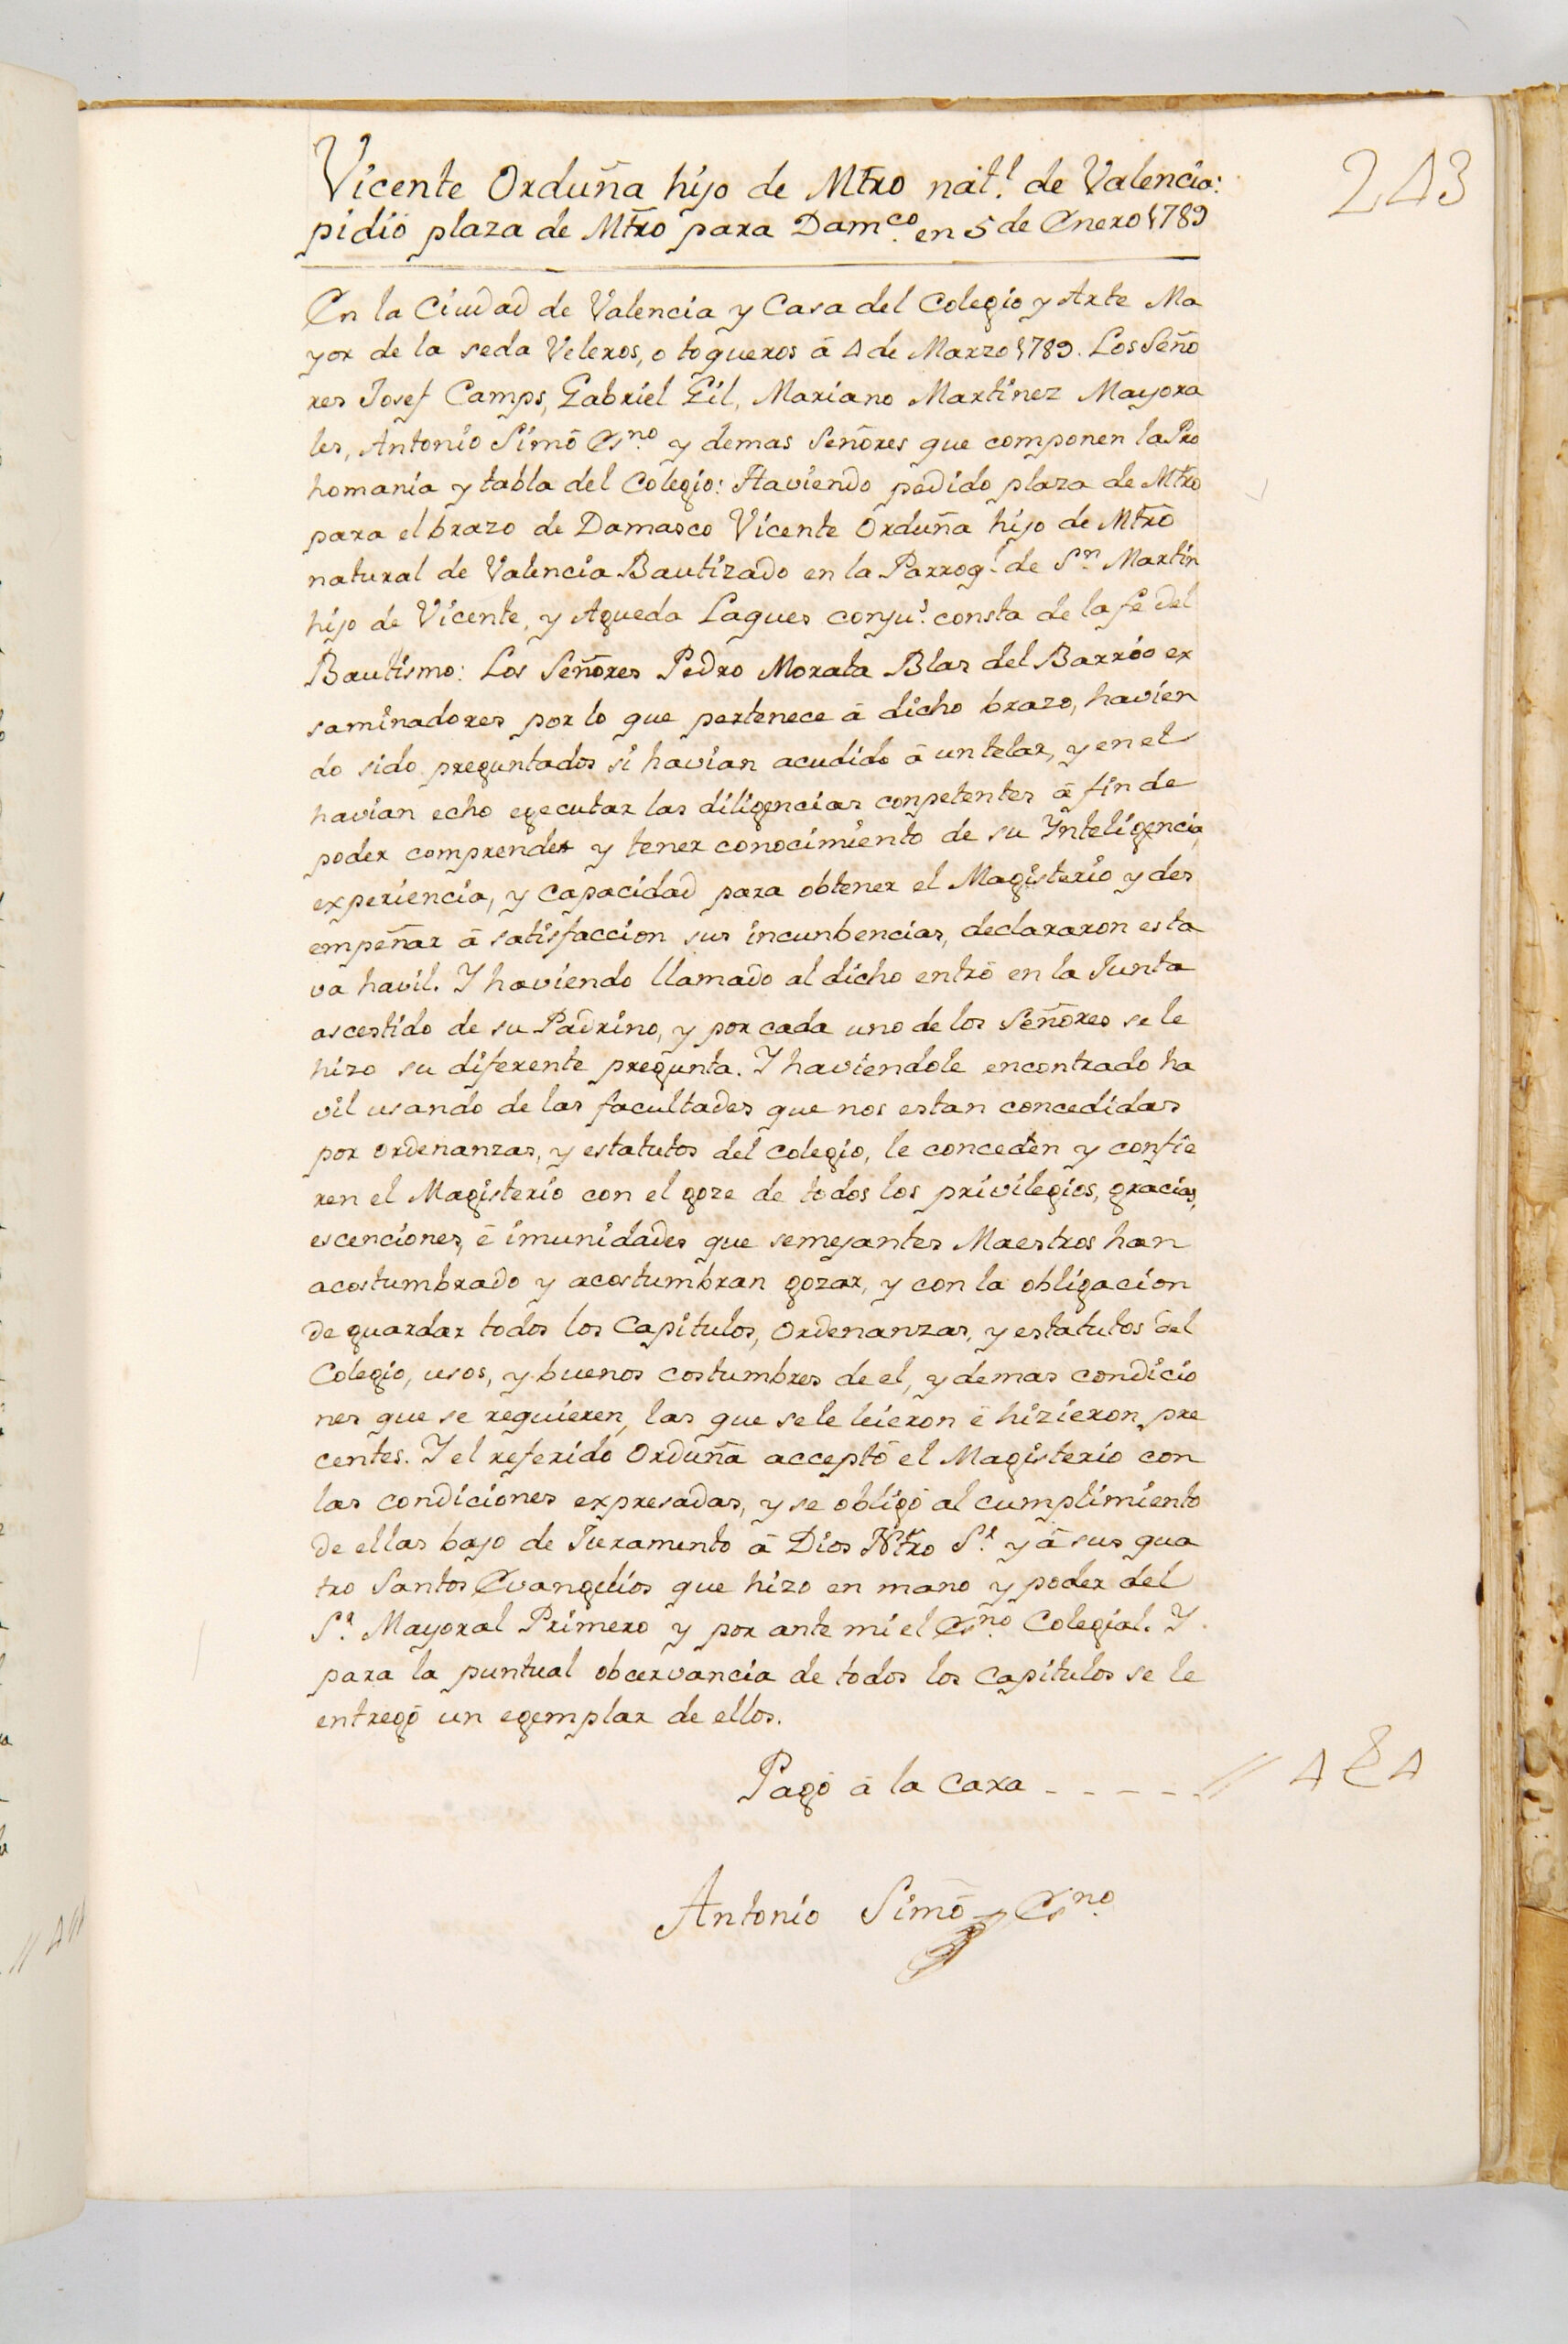 243
Vicente Orduña hijo de Mtro natl. de Valencia:
pidió plaza de Mtro para Damco. en 5 de Enero 1789
En la Ciudad de Valencia y Casa del Colegio y Arte Ma
yor de la seda Veleros, o toqueros á 4 de Marzo 1789. Los Seño
res Josef Camps, Gabriel Gil, Mariano Martinez Mayora
les, Antonio Simó Esno. y demas Señores que componen la Pro
homania y tabla del Colegio: Haviendo pedido plaza de Mtro
para el brazo de Damasco Vicente Orduña hijo de Mtro
natural de Valencia Bautizado en la Parroql. de Sn. Martin
hijo de Vicente, y Agueda Lagues conyus. consta de la fe del
Bautismo: Los Señores Pedro Morata Blas del Barrio ex
saminadores por lo que pertenece á dicho brazo, havien
do sido preguntados si havian acudido á un telar, y en el
havian echo egecutar las diligencias conpetentes á fin de
poder comprender y tener conocimiento de su Ynteligencia,
experiencia, y capacidad para obtener el Magisterio y des
empeñar á satisfaccion sus incunbencias, declararon esta
va havil. Y haviendo llamado al dicho entró en la Junta
ascestido de su Padrino, y por cada uno de los Señores se le
hizo su diferente pregunta. Y haviendole encontrado ha
vil usando de las facultades que nos estan concedidas
por ordenanzas, y estatutos del colegio, le conceden y confie
ren el Magisterio con el goze de todos los privilegios, gracias,
escenciones, é imunidades que semejantes Maestros han
acostumbrado y acostumbran gozar, y con la obligacion
de guardar todos los Capitulos, Ordenanzas, y estatutos del
Colegio, usos, y buenos costumbres de el, y demas condicio
nes que se requieren, las que se le leieron é hizieron pre
centes. Y el referido Orduña acceptó el Magisterio con
las condiciones expresadas, y se obligó al cumplimiento
de ellas bajo de Juramento á Dios Ntro Sr. y á sus qua
tro Santos Evangelios que hizo en mano y poder del
Sr. Mayoral Primero y por ante mi el Esno. Colegial. Y
para la puntual obcervancia de todos los Capitulos se le
entregó un egemplar de ellos.
Pagó á la Caxa - - - - - // 4 £ 4
Antonio Simó Esno.